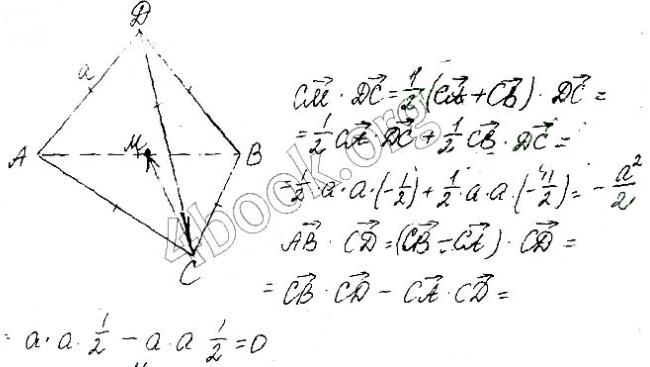 D
a
A
M
B
C
4book.org
CM⃗ · DC⃗ = 1/2 (CA⃗ + CB⃗) · DC⃗ =
= 1/2 CA⃗ · DC⃗ + 1/2 CB⃗ · DC⃗ =
= 1/2 · a · a · (-1/2) + 1/2 · a · a · (-1/2) = - a²/2
AB⃗ · CD⃗ = (CB⃗ - CA⃗) · CD⃗ =
= CB⃗ · CD⃗ - CA⃗ · CD⃗ =
= a · a · 1/2 - a · a 1/2 = 0